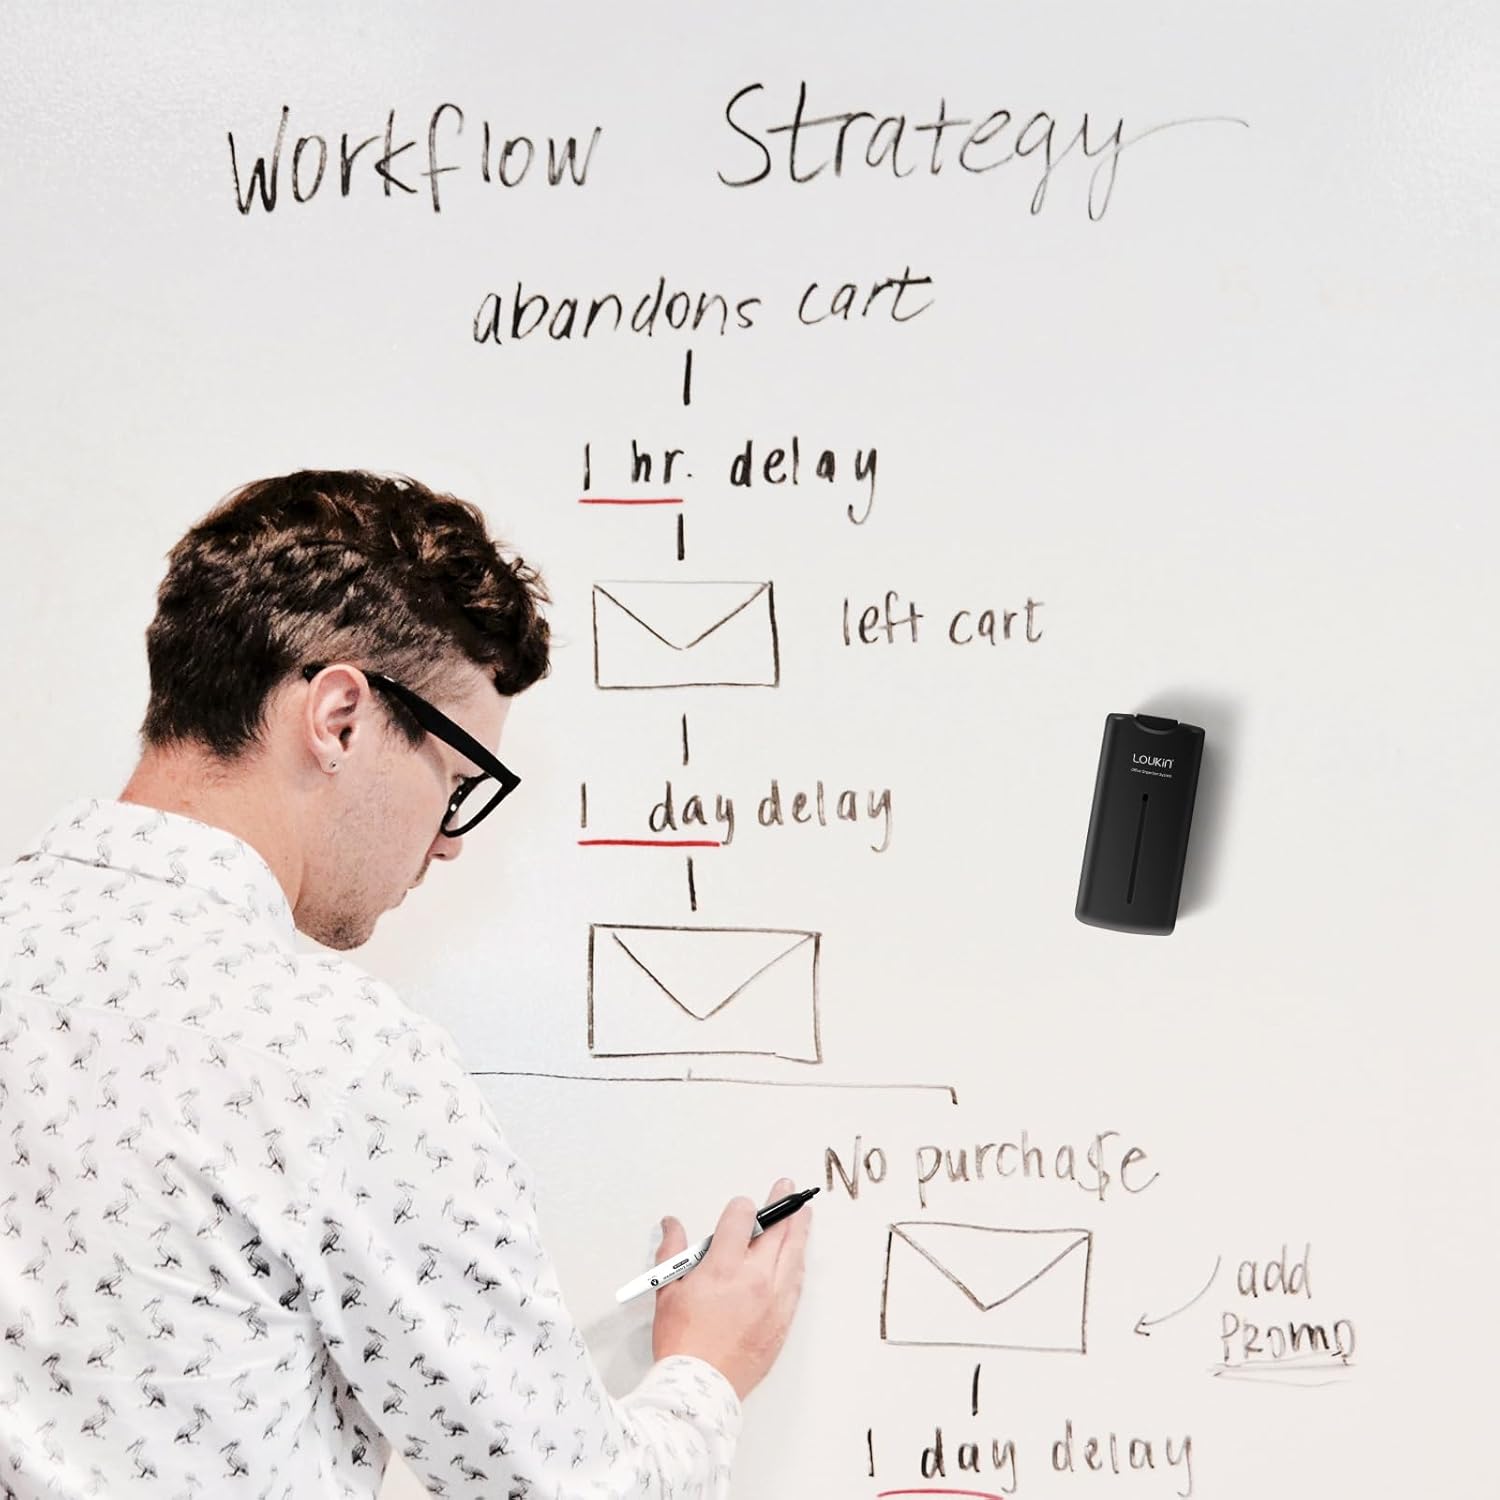 Workflow Strategy
abandons cart
1 hr. delay
left cart
LOUKIN
1 day delay
No purcha$e
add
PROMO
1 day delay